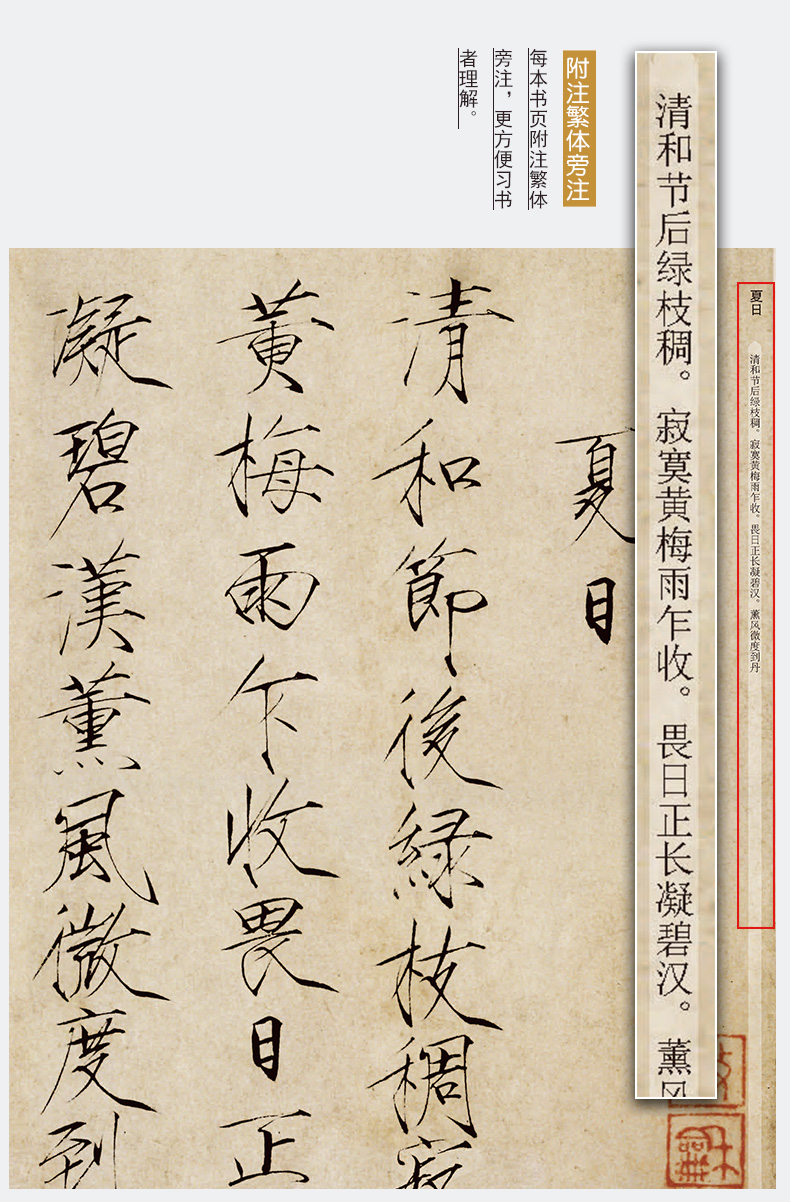 附注繁体旁注
每本书页附注繁体
旁注，更方便习书
者理解。
清和节后绿枝稠。寂寞黄梅雨乍收。畏日正长凝碧汉。薰风
夏日
清和节后绿枝稠。寂寞黄梅雨乍收。畏日正长凝碧汉。薰风微度到丹
夏日
清和節後緑枝稠寂
黄梅雨乍收畏日正
凝碧漢薰風微度到